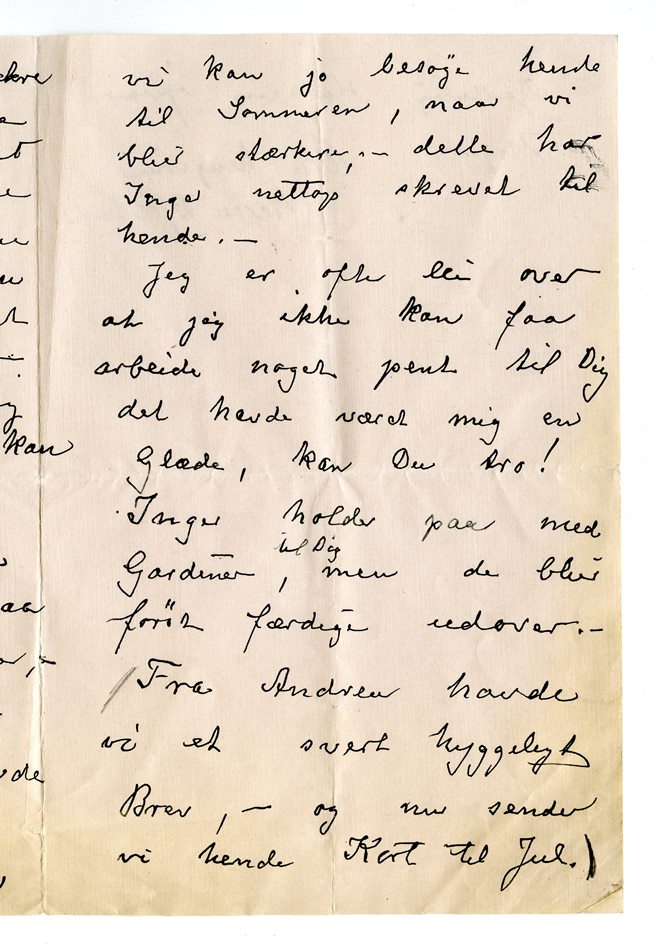 kan
aa
de
vi kan jo besøge hende
til Sommeren, naar vi
blir stærkere, – dette har
Inger nettop skrevet til
hende. –
Jeg er ofte lei over
at jeg ikke kan faa
arbeide noget pent til Dig
det havde været mig en
Glæde, kan Du tro!
Inger holder paa med
til Dig
Gardiner, men de blir
først færdige udover. –
(Fra Andrea havde
vi et svert hyggeligt
Brev, – og nu sender
vi hende Kort til Jul.)